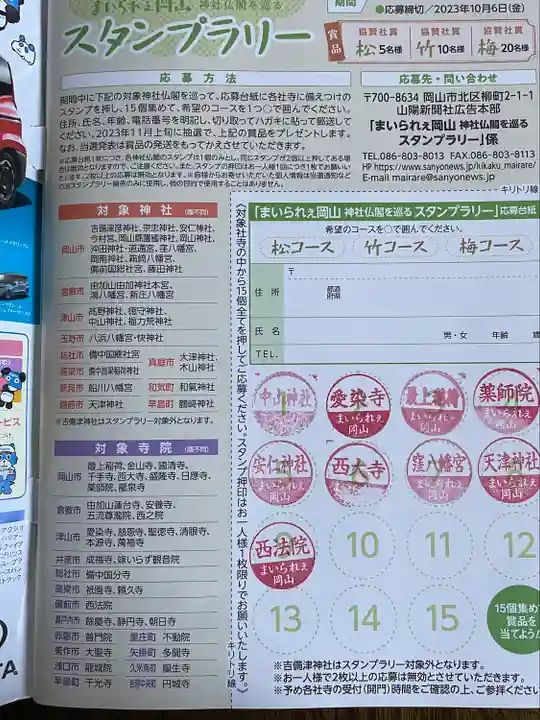 まいられぇ岡山 神社仏閣を巡る
スタンプラリー
期間
●応募締切／2023年10月6日(金)
賞品
協賛社賞
松 5名様
協賛社賞
竹 10名様
協賛社賞
梅 20名様
応募方法
期間中に下記の対象神社仏閣を巡って、応募台紙に各社寺に備えつけの
スタンプを押し、15個集めて、希望のコースを1つ○で囲んでください。
住所、氏名、年齢、電話番号を明記し、切り取ってハガキに貼って郵送
してください。2023年11月上旬に抽選で、上記の賞品をプレゼントします。
なお、当選発表は賞品の発送をもってかえさせていただきます。
応募先・問い合わせ
〒700-8634 岡山市北区柳町2-1-1
山陽新聞社広告本部
「まいられぇ岡山 神社仏閣を巡る
スタンプラリー」係
TEL.086-803-8013 FAX.086-803-8113
HP https://www.sanyonews.jp/kikaku_mairare/
E-mail mairare@sanyonews.jp
キリトリ線
対象神社 (順不同)
岡山市 吉備津彦神社、宗忠神社、安仁神社、
今村宮、岡山縣護國神社、岡山神社、
沖田神社・道通宮、窪八幡宮、
岡南神社、箱崎八幡宮、
備前国総社宮、藤田神社
倉敷市 由加山由加神社本宮、
鴻八幡宮、新庄八幡宮
津山市 髙野神社、徳守神社、
中山神社、福力荒神社
玉野市 八浜八幡宮・快神社
総社市 備中国總社宮
高梁市 備中高梁稲荷神社
真庭市 大津神社、
木山神社
新見市 船川八幡宮
和気町 和氣神社
備前市 天津神社
早島町 鶴崎神社
※吉備津神社はスタンプラリー対象外となります。
対象寺院 (順不同)
岡山市 最上稲荷、金山寺、國清寺、
千手寺、西大寺、盛隆寺、日應寺、
薬師院、龍泉寺
倉敷市 由加山蓮台寺、安養寺、
五流尊瀧院、西之院
津山市 愛染寺、慈恩寺、聖徳寺、清眼寺、
本源寺、萬福寺
井原市 成福寺、嫁いらず観音院
総社市 備中国分寺
高梁市 祇園寺、頼久寺
備前市 西法院
瀬戸内市 餘慶寺、静円寺、朝日寺
赤磐市 普門院
里庄町 不動院
美作市 大聖寺
矢掛町 多聞寺
浅口市 龍城院
久米南町 誕生寺
早島町 千光寺
吉備中央町 円城寺
キリトリ線
《対象社寺の中から15個全てを押してご応募ください。スタンプ押印はお一人様1枚限りでお願いいたします。》
「まいられぇ岡山 神社仏閣を巡る スタンプラリー」応募台紙
希望のコースを○で囲んでください。
松コース
竹コース
梅コース
住所
〒
都道
府県
氏名
男・女
年齢
TEL.
中山神社
まいられぇ
岡山
愛染寺
まいられぇ
岡山
最上稲荷
まいられぇ
岡山
薬師院
まいられぇ
岡山
安仁神社
まいられぇ
岡山
西大寺
まいられぇ
岡山
窪八幡宮
まいられぇ
岡山
天津神社
まいられぇ
岡山
西法院
まいられぇ
岡山
10
11
12
13
14
15
15個集め
賞品を
当てよう
※吉備津神社はスタンプラリー対象外となります。
※お一人様で2枚以上の応募は無効とさせていただきます。
※予め各社寺の受付(開門)時間をご確認の上、ご参拝くださ